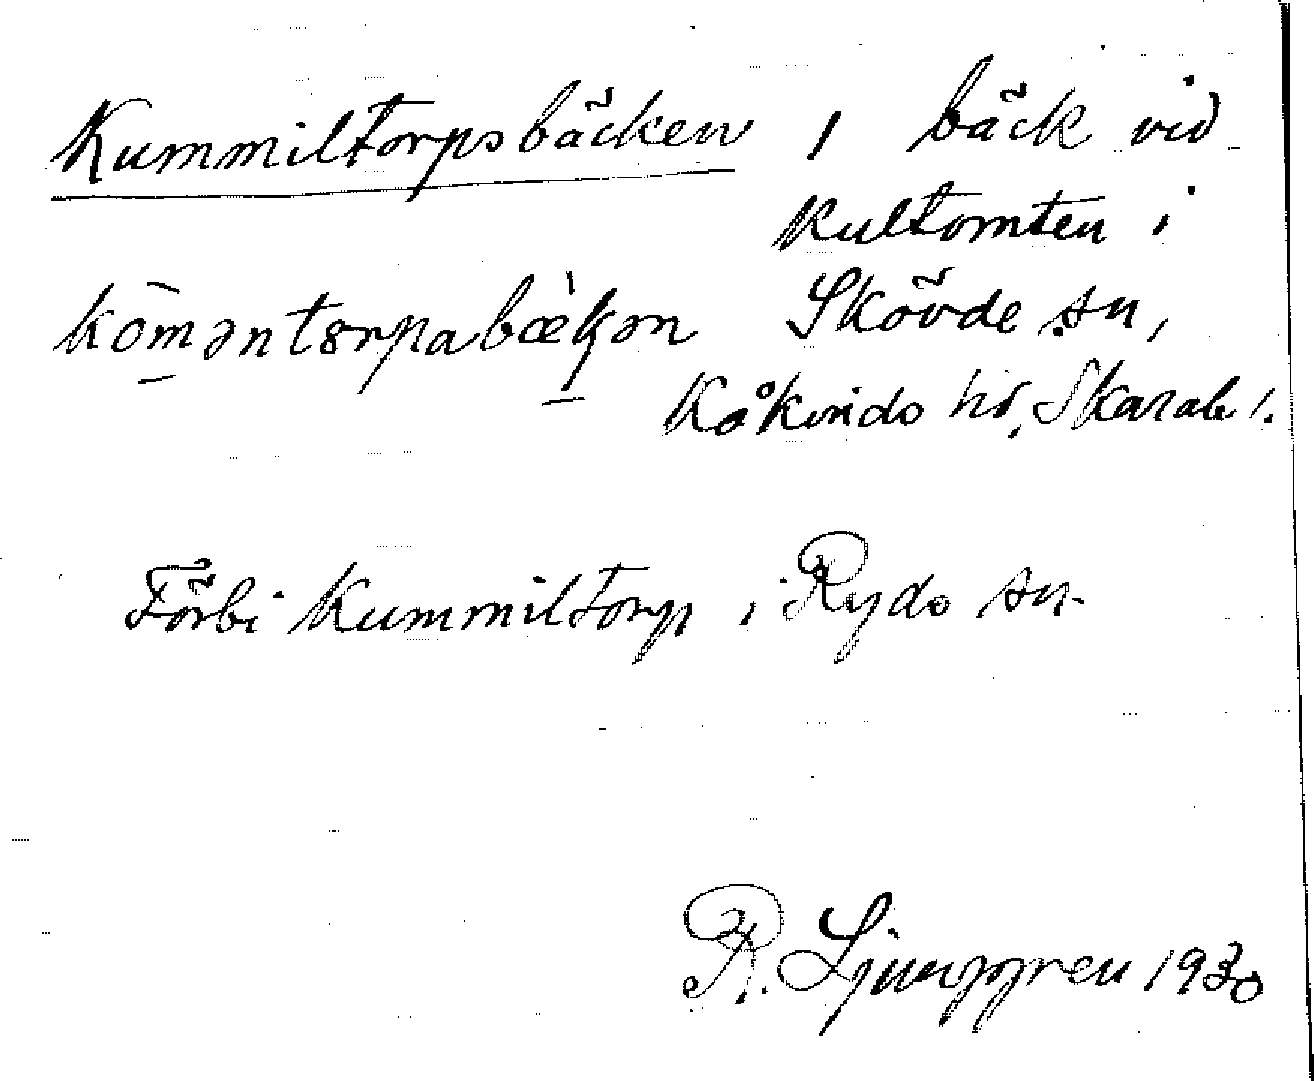 Kummiltorpsbäcken, bäck vid
Kultomten i
kōməntɞrpabæ̀kən Skövde sn,
Kåkinds hd, Skarab l.
Förbi Kummiltorp i Ryds sn.
R. Ljunggren 1930